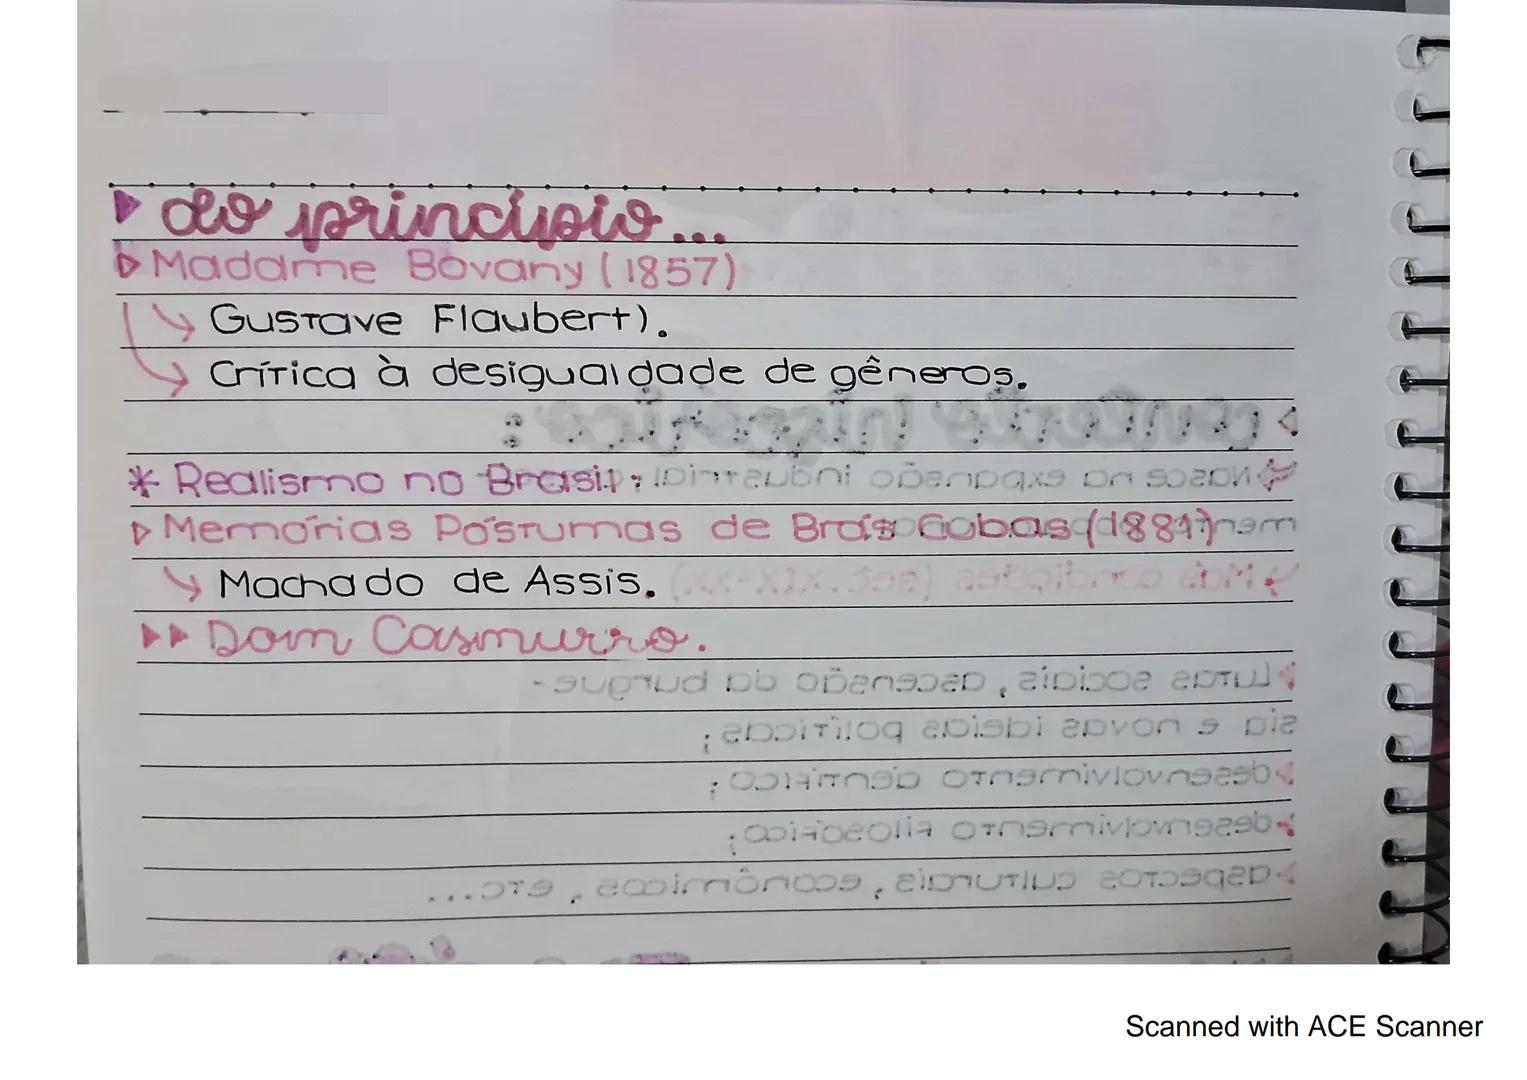 ▶ do princípio...
▷ Madame Bovany (1857)
↳ Gustave Flaubert).
↳ Crítica à desigualdade de gêneros.
* Realismo no Brasil:
▷ Memórias Póstumas de Brás Cubas (1881)
↳ Machado de Assis.
▷▷ Dom Casmurro.
Scanned with ACE Scanner